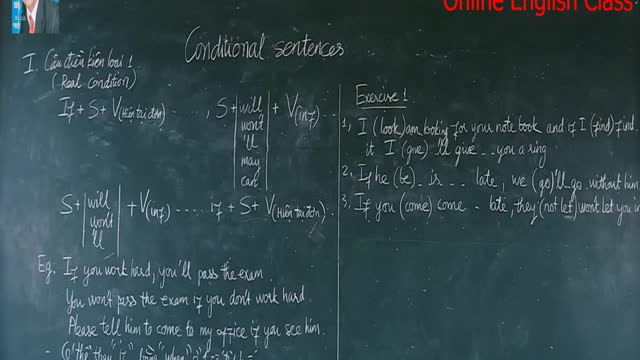 Online English Class
Conditional sentences
I. Câu điều kiện loại 1.
(Real condition)
If + S + V(Hiện tại đơn) , S + will + V(inf) ...
won't
'll
may
can
S + will + V(inf) ..... if + S + V(Hiện tại đơn)
won't
'll
Eg: If you work hard, you'll pass the exam.
You won't pass the exam if you don't work hard.
Please tell him to come to my office if you see him.
- Có thể thay "if" bằng "when"
Exercise 1
1, I (look) am looking for your note book and if I (find) find
it I (give) 'll give ... you a ring
2. If he (be) .. is ... late, we (go) 'll go without him
3. If you (come) come .. late, they (not let) won't let you in